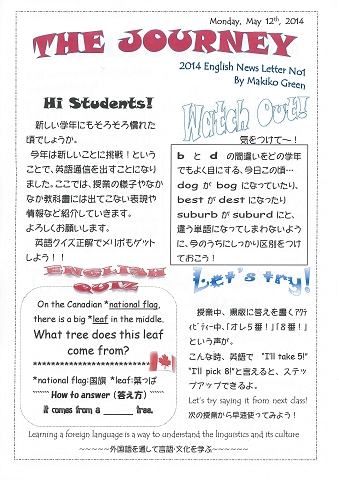 Monday, May 12th, 2014
THE JOURNEY
2014 English News Letter No1
By Makiko Green
Hi Students!
新しい学年にもそろそろ慣れた
頃でしょうか。
今年は新しいことに挑戦！という
ことで、英語通信を出すことになり
ました。ここでは、授業の様子やなか
なか教科書には出てこない表現や
情報など紹介していきます。
よろしくお願いします。
英語クイズ正解でメリポもゲット
しよう！！
Watch Out!
気をつけて～！
b と d の間違いをどの学年
でもよく目にする、今日この頃…
dog が bog になっていたり、
best が dest になったり
suburb が suburd にと、
違う単語になってしまわないよう
に、今のうちにしっかり区別をつけ
ておこう！
ENGLISH
QUIZ
On the Canadian *national flag,
there is a big *leaf in the middle.
What tree does this leaf
come from?
*national flag:国旗 *leaf:葉っぱ
How to answer (答え方)
it comes from a ______ tree.
Let's try!
授業中、黒板に答えを書くｱｸﾃ
ｨﾋﾞﾃｨｰ中、「オレ５番！」「８番！」
という声が。
こんな時、英語で "I'll take 5!"
"I'll pick 8!"と言えると、ステッ
プアップできるよ。
Let's try saying it from next class!
次の授業から早速使ってみよう！
Learning a foreign language is a way to understand the linguistics and its culture
～～～～～外国語を通して言語・文化を学ぶ～～～～～